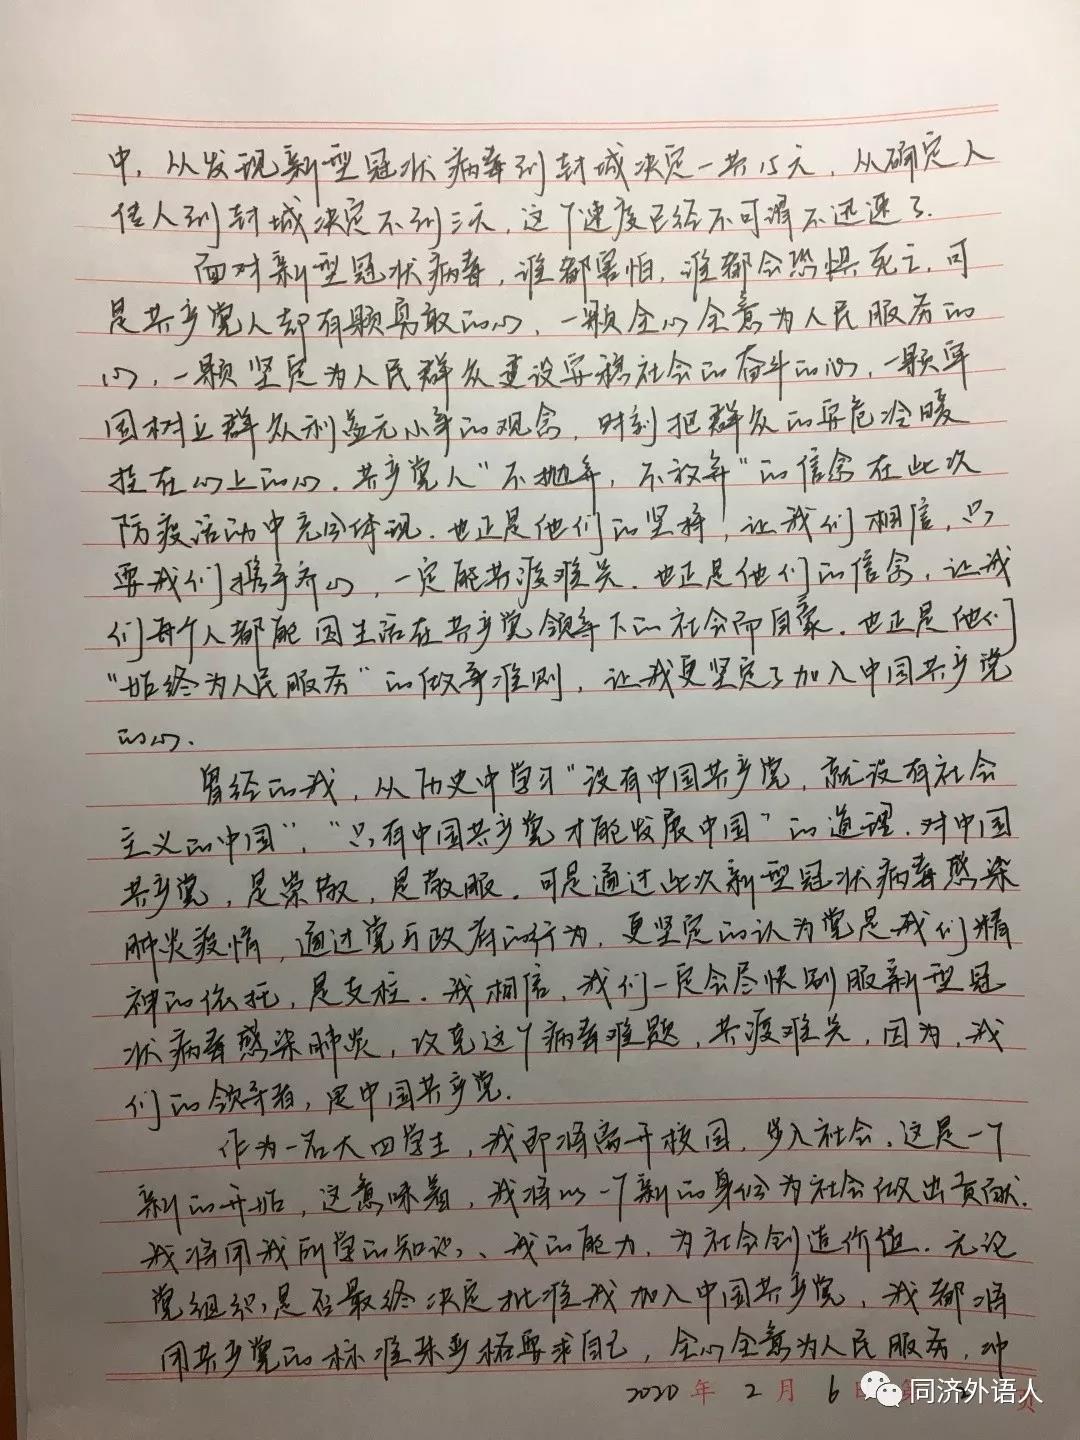 中,从发现新型冠状病毒到封城决定一共15天,从确定人
传人到封城决定不到三天,这个速度已经不可谓不迅速了.
面对新型冠状病毒,谁都害怕,谁都会恐惧死亡,可
是共产党人却有颗勇敢的心,一颗全心全意为人民服务的
心,一颗坚定为人民群众建设安稳社会而奋斗的心,一颗牢
固树立群众利益无小事的观念,时刻把群众的安危冷暖
挂在心上的心.共产党人“不抛弃,不放弃”的信念在此次
防疫活动中充分体现.也正是他们的坚持,让我们相信,只
要我们携手齐心,一定能共渡难关.也正是他们的信念,让我
们每个人都能因生活在共产党领导下的社会而自豪.也正是他们
“始终为人民服务”的做事准则,让我更坚定了加入中国共产党
的心.
曾经的我,从历史中学习“没有中国共产党,就没有社会
主义的中国”,“只有中国共产党才能发展中国”的道理.对中国
共产党,是崇敬,是敬服.可是通过此次新型冠状病毒感染
肺炎疫情,通过党与政府的行为,更坚定的认为党是我们精
神的依托,是支柱.我相信,我们一定会尽快剋服新型冠
状病毒感染肺炎,攻克这个病毒难题,共渡难关,因为,我
们的领导者,是中国共产党.
作为一名大四学生,我即将离开校园,步入社会.这是一个
新的开始,这意味着,我将以一个新的身份为社会做出贡献.
我将用我所学的知识、我的能力,为社会创造价值.无论
党组织是否最终决定批准我加入中国共产党,我都将
用共产党的标准来严格要求自己,全心全意为人民服务,冲
2020年2月6日 第 页
同济外语人